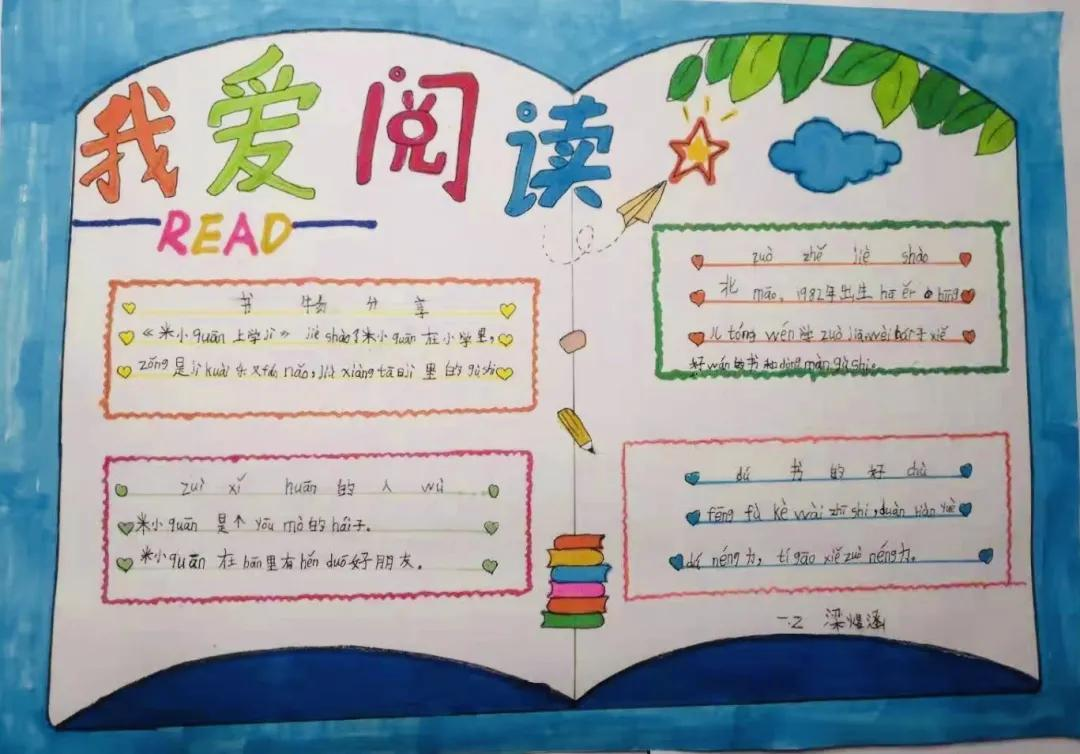 我爱阅读
READ
书 籍 分 享
《米小quān 上学jì》 jiè shào了米小quān 在小学里,
zǒng是jì kuài 乐 又fán nǎo, jiù xiàng tā日jì 里 的 gù shi
zuì xǐ huān 的 人 wù
米小quān 是个 yōu mò 的hái子。
米小quān 在 bān里有hěn duō好朋友。
zuò zhě jiè shào
北 māo, 1982年出生 hā ěr bīng
儿tóng wén学zuò jiā, wài hái于xiě
好wán的书和dòng màn gù shi。
dú 书 的 好 chù
fēng fù kè wài zhī shi, duàn liàn yuè
dú néng力, tí gāo xiě zuò néng力。
一.2 梁煜涵